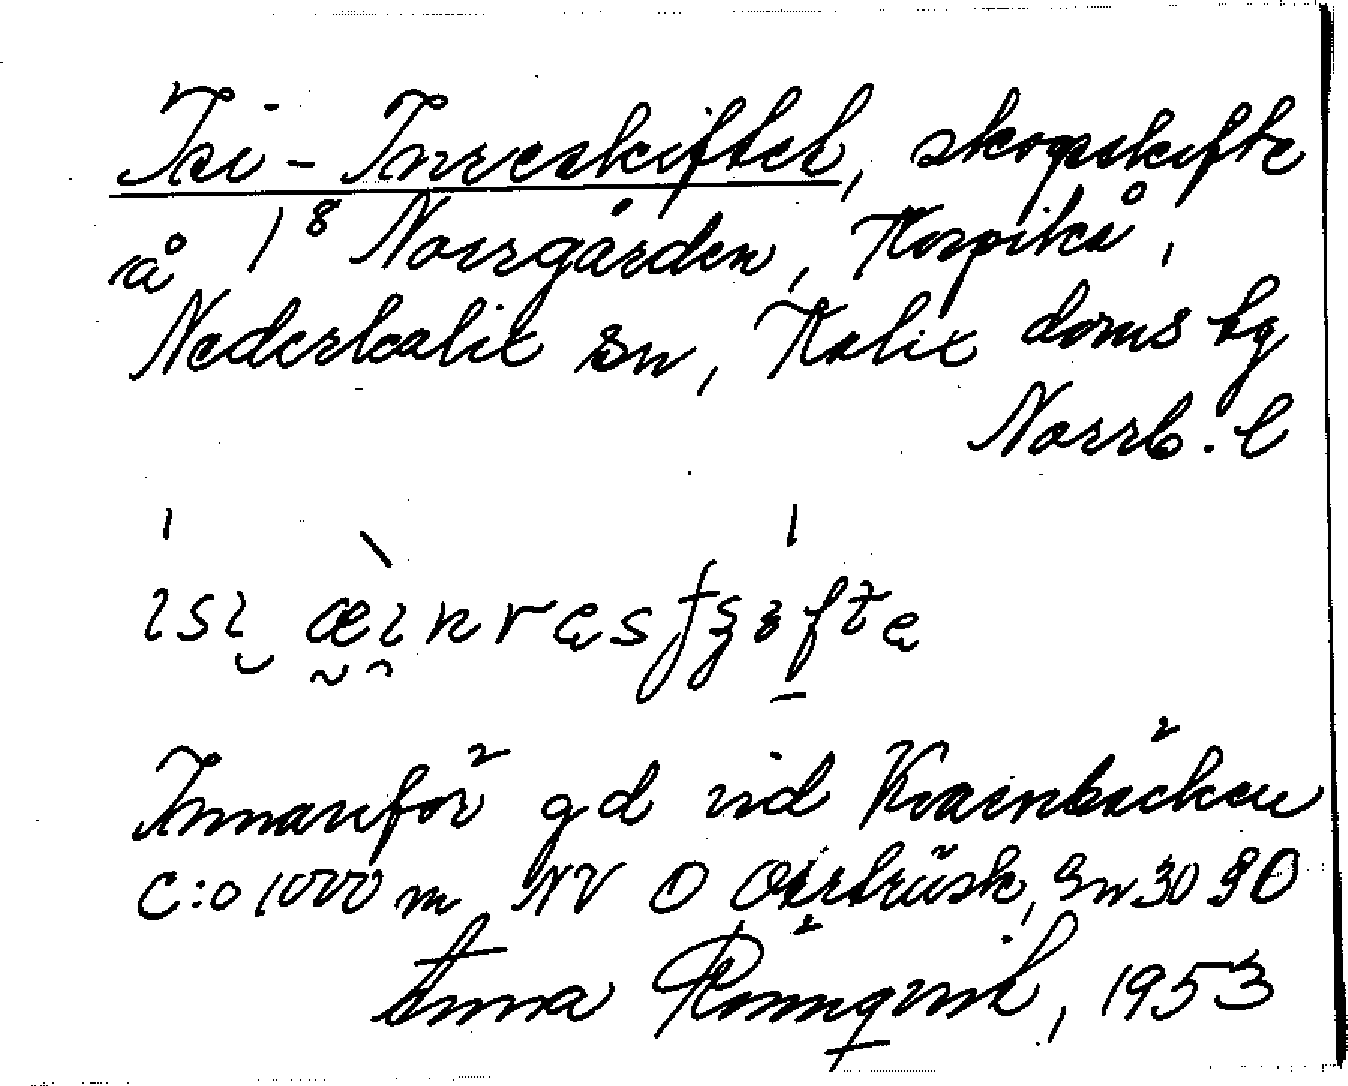 Isi-Inreskiftet, skogsskifte
å 1⁸ Norrgården, Korpikå,
Nederkalix sn, Kalix doms tg
Norrb. l
Innanför gd vid Kvarnbäcken
C:o 1000 m NV O träsk, Sn 30 90
Anna Rönnqvist, 1953